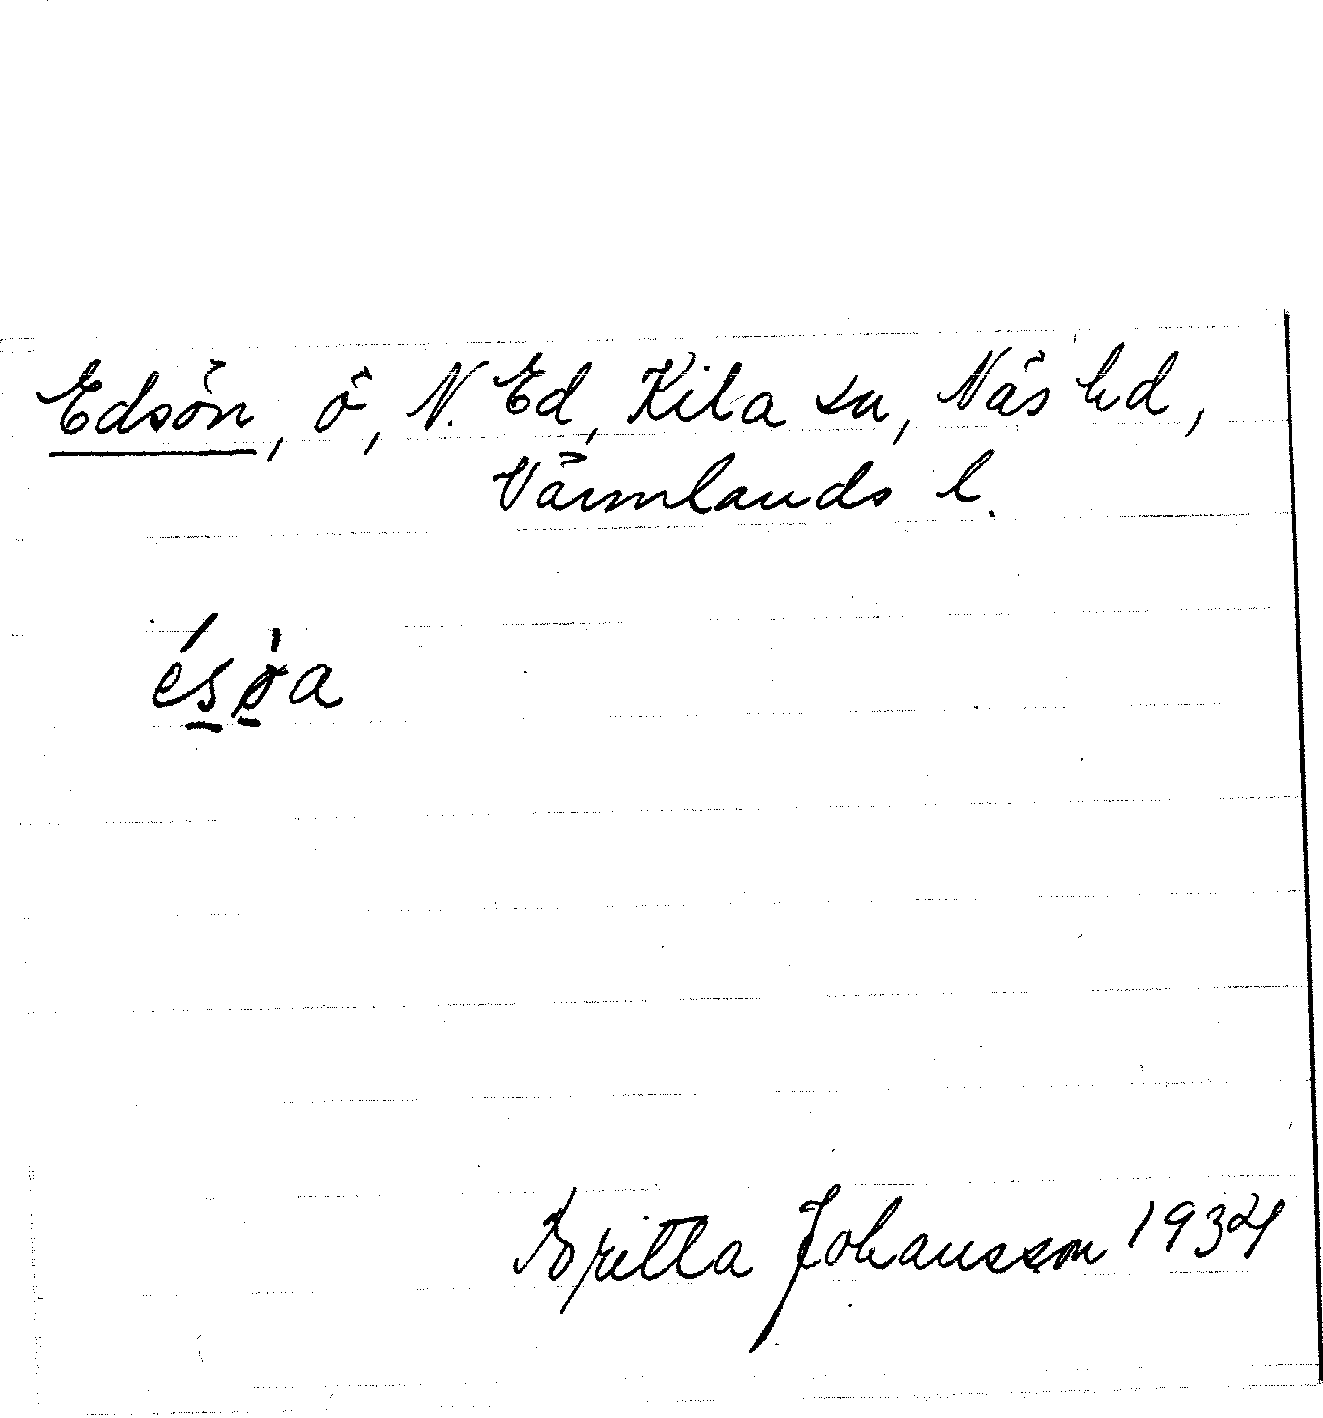 Edsön, ö, N. Ed, Kila sn, Näs hd,
Värmlands l.
ésø̀a
Britta Johansson 1934